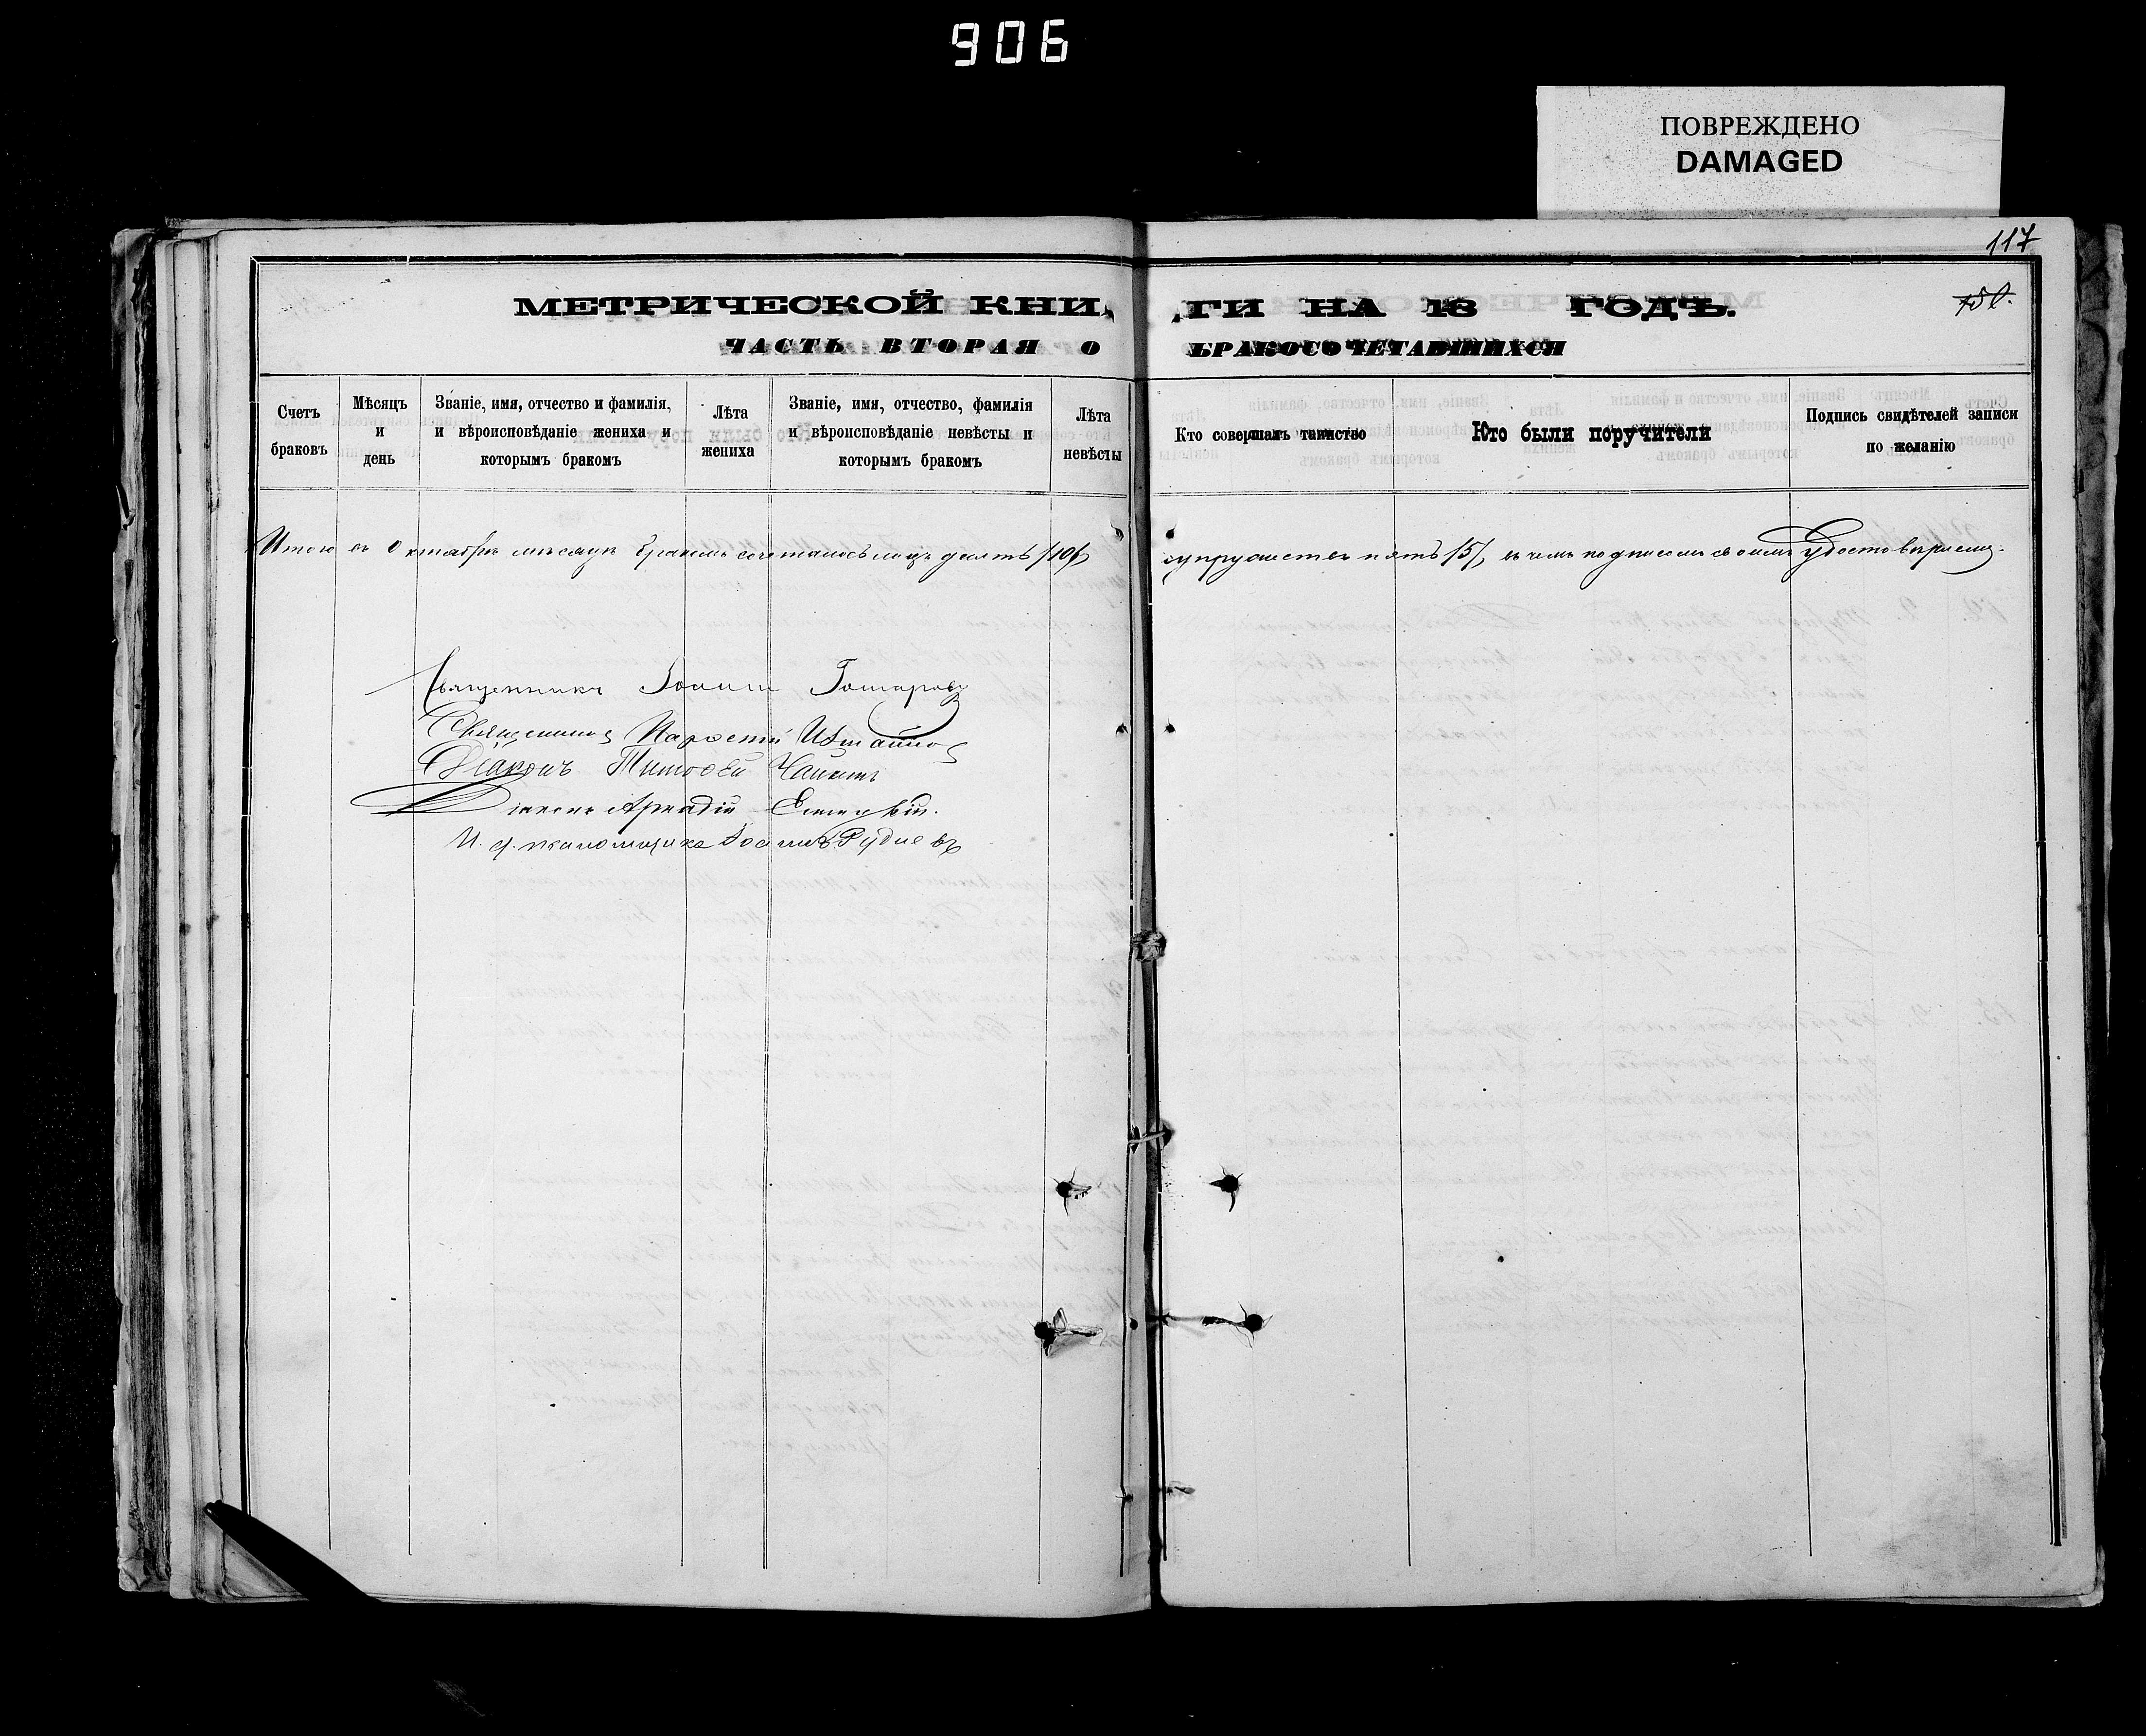 906
ПОВРЕЖДЕНО
DAMAGED
117
150.
МЕТРИЧЕСКОЙ КНИГИ НА 18 ГОДЪ.
ЧАСТЬ ВТОРАЯ О БРАКОСОЧЕТАВШИХСЯ
Счетъ браковъ
Мѣсяцъ и день
Званіе, имя, отчество и фамилія, и вѣроисповѣданіе жениха и которымъ бракомъ
Лѣта жениха
Званіе, имя, отчество, фамилія и вѣроисповѣданіе невѣсты и которымъ бракомъ
Лѣта невѣсты
Кто совершалъ таинство
Кто были поручители
Подпись свидѣтелей записи по желанію
Итого въ Октябрѣ мѣсяцѣ бракомъ сочеталось лицъ десять /10/, супружествъ пять /5/, въ чемъ подписомъ своимъ удостовѣряемъ.
Священникъ Іоаннъ
Священникъ
Діаконъ Тимофей
Діаконъ Аркадій
И. д. псаломщика Іоаннъ Рудневъ